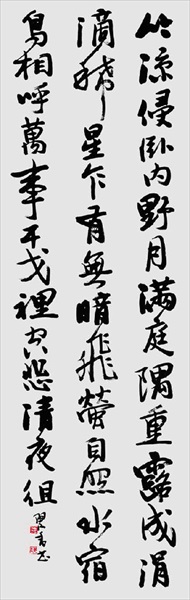 竹涼侵臥內野月滿庭隅重露成涓
滴稀星乍有無暗飛螢自照水宿
鳥相呼萬事干戈裡空悲清夜徂